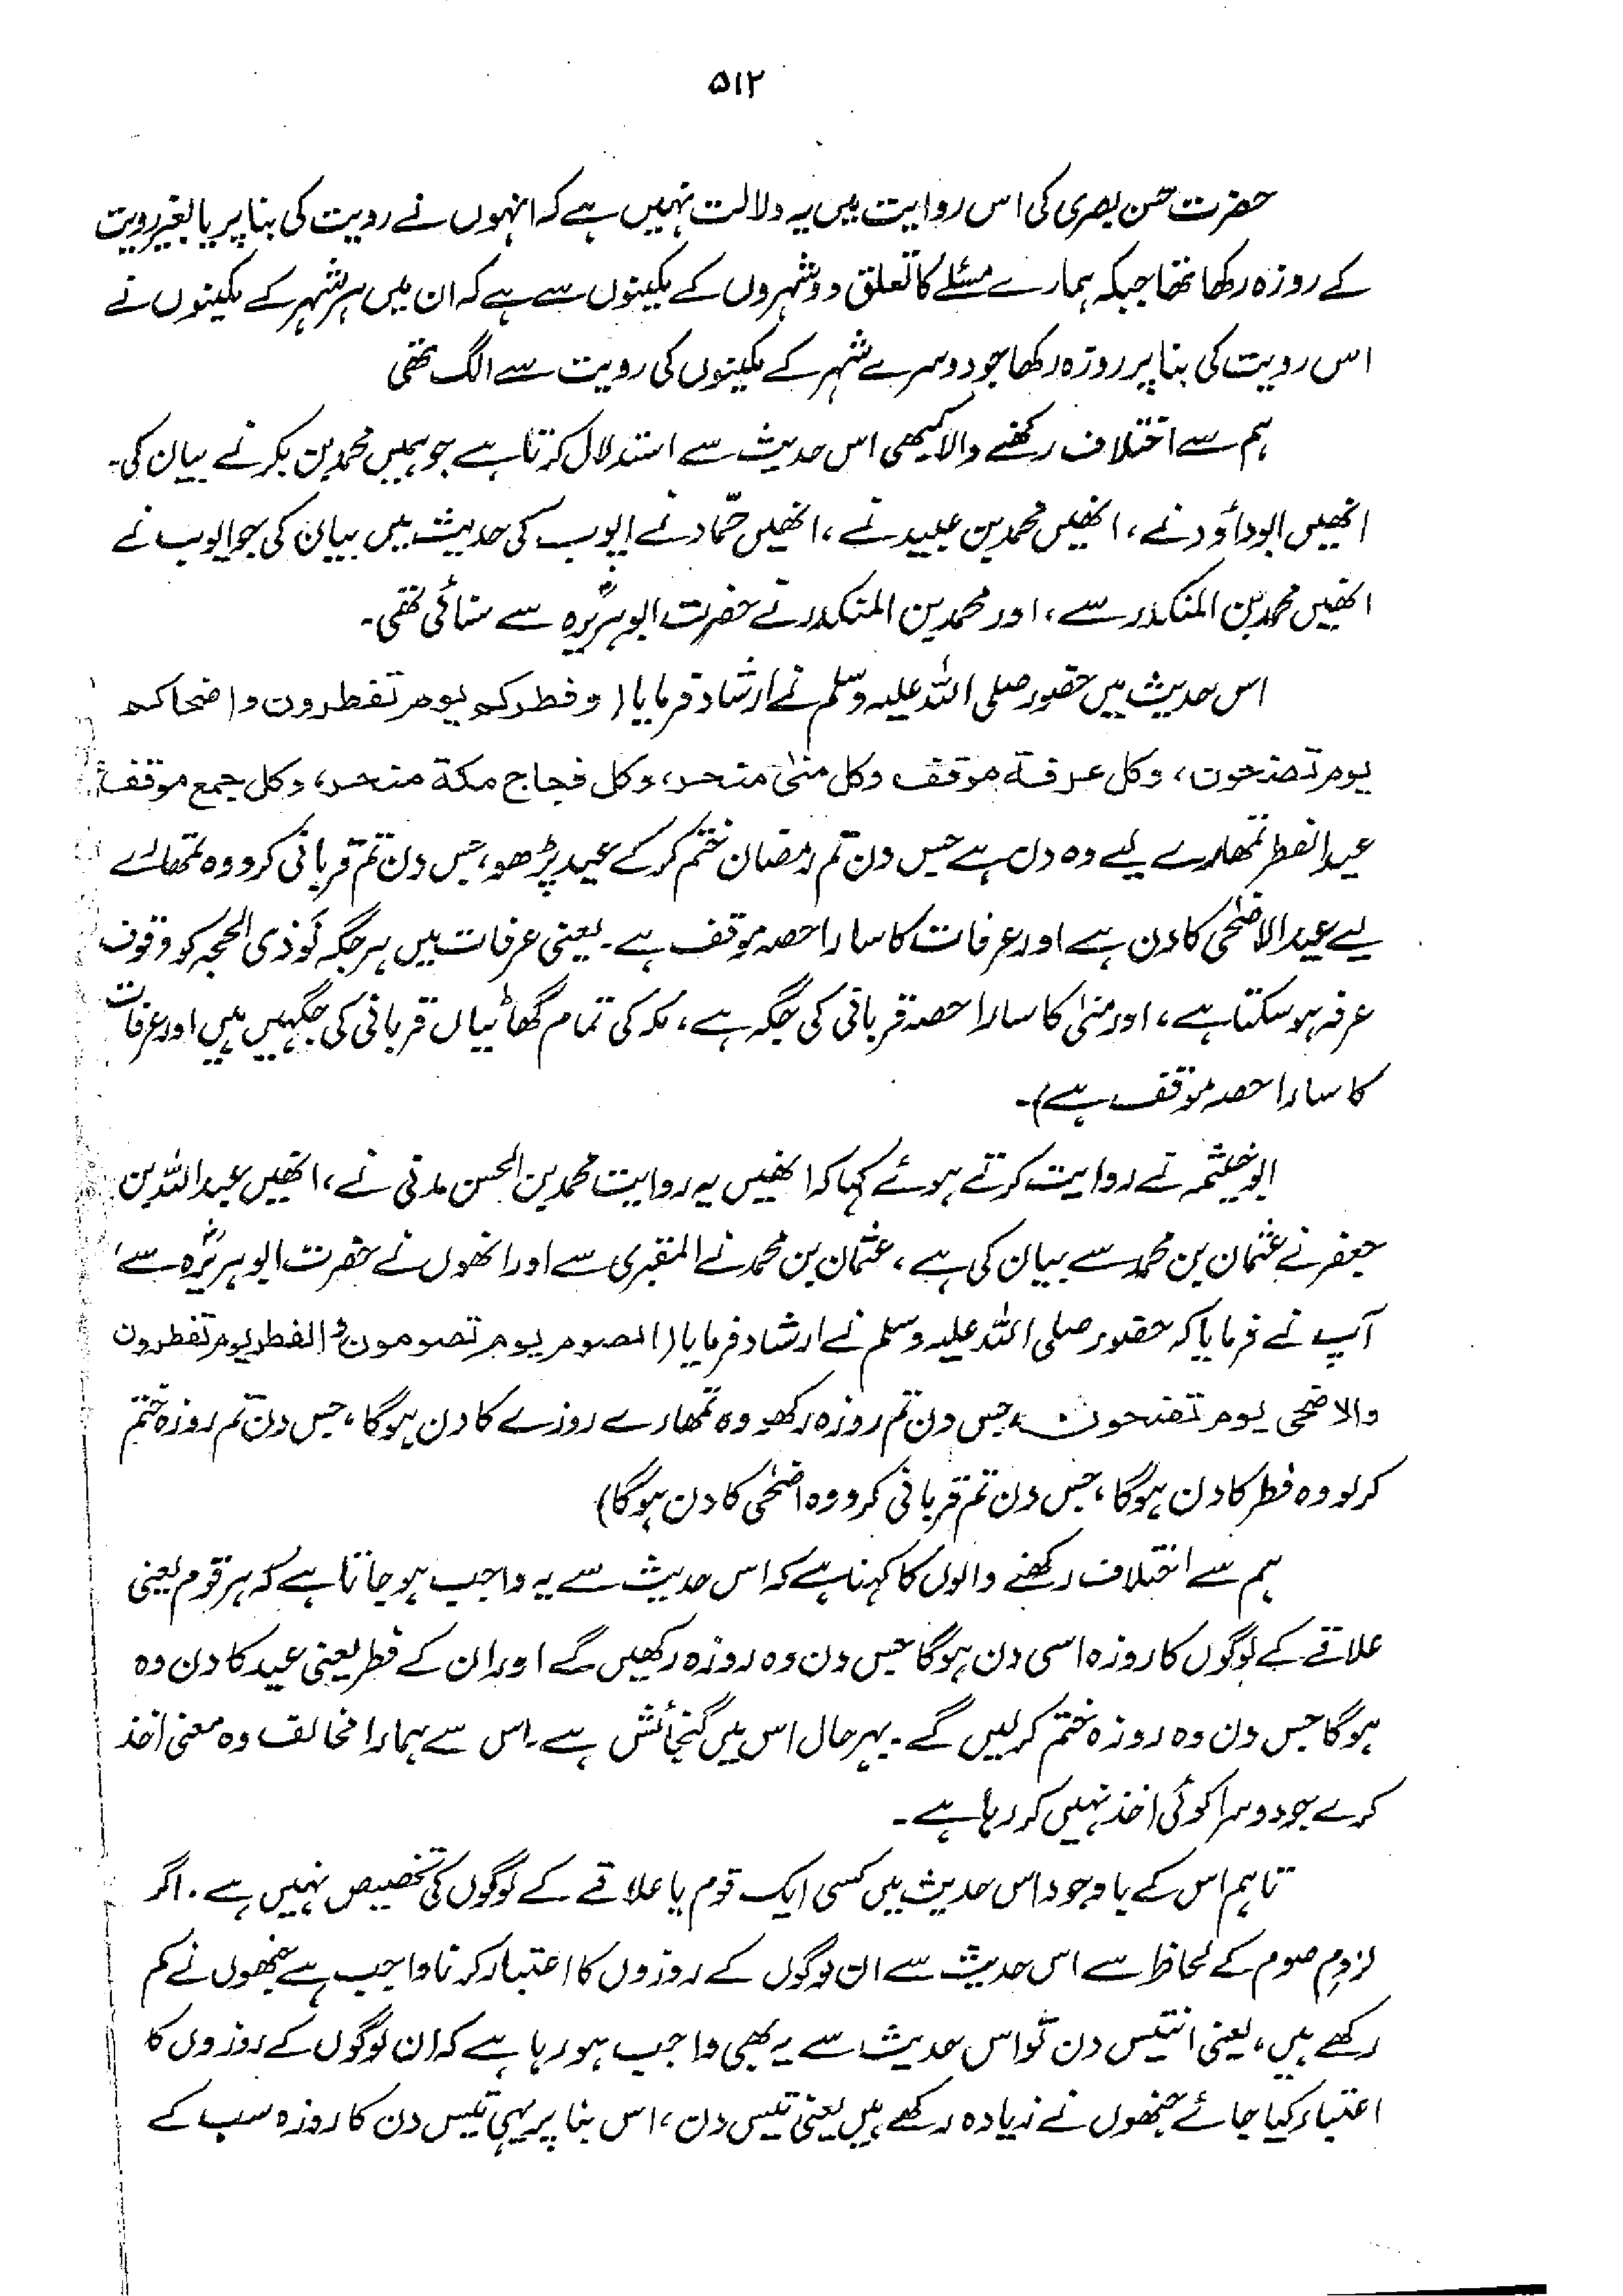 ۵۱۲
حضرت حسن بصری کی اس روایت میں یہ دلالت نہیں ہے کہ انہوں نے رویت کی بنا پر یا بغیر رویت
کے روزہ رکھا تھا جبکہ ہمارے مسئلے کا تعلق دو شہروں کے مکینوں سے ہے کہ ان میں ہر شہر کے مکینوں نے
اس رویت کی بنا پر روزہ رکھا جو دوسرے شہر کے مکینوں کی رویت سے الگ تھی
ہم سے اختلاف رکھنے والا کبھی اس حدیث سے استدلال کرتا ہے جو ہمیں محمد بن بکر نے بیان کی۔
انھیں ابو داؤد نے، انھیں محمد بن عبید نے، انھیں حمّاد نے ایوب کی حدیث میں بیان کی جو ایوب نے
انھیں محمد بن المنکدر سے، اور محمد بن المنکدر نے حضرت ابو ہریرہؓ سے سنائی تھی۔
اس حدیث میں حضور صلی اللہ علیہ وسلم نے ارشاد فرمایا (وفطرکم یوم تفطرون واضحاکم
یوم تضحون، وکل عرفة موقف وکل منیٰ منحر، وکل فجاج مکة منحر، وکل جمع موقف،
عید الفطر تمھارے لیے وہ دن ہے جس دن تم رمضان ختم کر کے عید پڑھو، جس دن تم قربانی کرو وہ تمھارے
لیے عید الاضحٰی کا دن ہے اور عرفات کا سارا حصہ موقف ہے۔ یعنی عرفات میں ہر جگہ نو ذی الحجہ کو وقوف
عرفہ ہو سکتا ہے، اور منیٰ کا سارا حصہ قربانی کی جگہ ہے، مکہ کی تمام گھاٹیاں قربانی کی جگہیں ہیں اور عرفات
کا سارا حصہ موقف ہے)۔
ابو خیثمہ نے روایت کرتے ہوئے کہا کہ انھیں یہ روایت محمد بن الحسن مدنی نے، انھیں عبد اللہ بن
جعفر نے عثمان بن محمد سے بیان کی ہے، عثمان بن محمد نے المقبری سے اور انھوں نے حضرت ابو ہریرہؓ سے،
آپ نے فرمایا کہ حضور صلی اللہ علیہ وسلم نے ارشاد فرمایا (الصوم یوم تصومون والفطر یوم تفطرون
والاضحی یوم تضحون، جس دن تم روزہ رکھو وہ تمھارے روزے کا دن ہوگا، جس دن تم روزہ ختم
کر لو وہ فطر کا دن ہوگا، جس دن تم قربانی کرو وہ اضحٰی کا دن ہوگا)
ہم سے اختلاف رکھنے والوں کا کہنا ہے کہ اس حدیث سے یہ واجب ہو جاتا ہے کہ ہر قوم یعنی
علاقے کے لوگوں کا روزہ اسی دن ہوگا جس دن وہ روزہ رکھیں گے اور ان کے فطر یعنی عید کا دن وہ
ہوگا جس دن وہ روزہ ختم کر لیں گے۔ بہرحال اس میں گنجائش ہے۔ اس سے ہمارا مخالف وہ معنی اخذ
کرے جو دوسرا کوئی اخذ نہیں کر رہا ہے۔
تاہم اس کے باوجود اس حدیث میں کسی ایک قوم یا علاقے کے لوگوں کی تخصیص نہیں ہے۔ اگر
لزوم صوم کے لحاظ سے اس حدیث سے ان لوگوں کے روزوں کا اعتبار کرنا واجب ہے جنھوں نے کم
رکھے ہیں، یعنی انتیس دن تو اس حدیث سے یہ بھی واجب ہو رہا ہے کہ ان لوگوں کے روزوں کا
اعتبار کیا جائے جنھوں نے زیادہ رکھے ہیں یعنی تیس دن، اس بنا پر یہی تیس دن کا روزہ سب کے